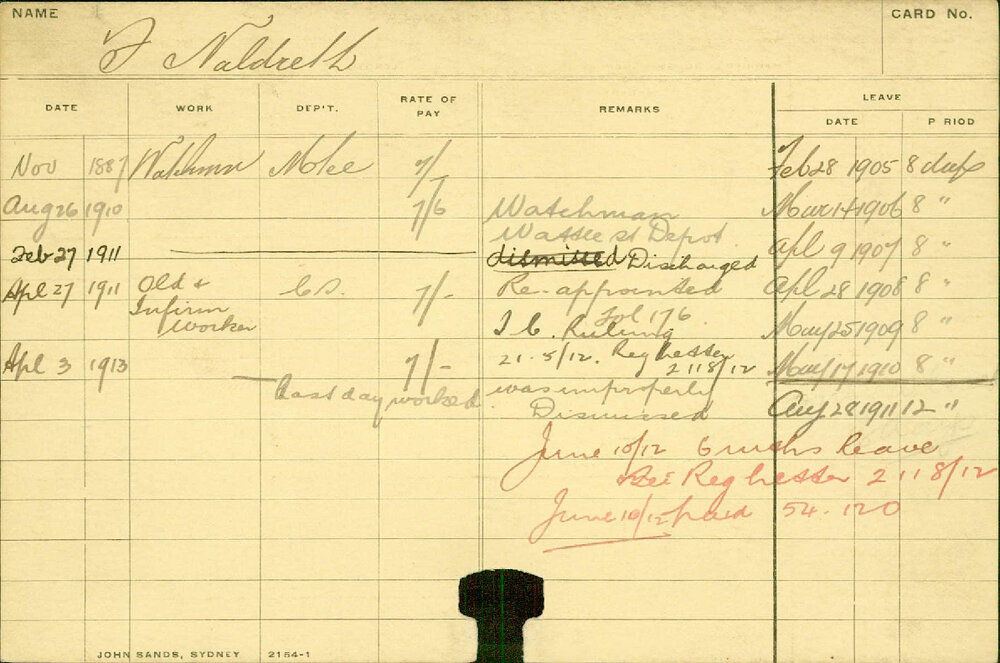 NAME
CARD No.
F Naldreth
DATE WORK DEP'T. RATE OF PAY REMARKS LEAVE
DATE P RIOD
Nov 1887 Watchman 7/- Feb 28 1905 8 days
Aug 26 1910 7/6 Watchman Mar 14 1906 8 "
Wattle st Depot
Feb 27 1911 dismissed Discharged Apl 9 1907 8 "
Apl 27 1911 Old & C.S. 7/- Re-appointed Apl 28 1908 8 "
Infirm Fol 176
Worker Ruling May 25 1909 8 "
Apl 3 1913 7/- 21.5/12. Reg Letter
2118/12 May 17 1910 8 "
Last day worked was improperly
Dismissed Aug 28 1911 12 "
June 10/12 6 mths leave
Reg Letter 2118/12
June 10/12 paid 54.12.0
JOHN SANDS, SYDNEY 2154-1